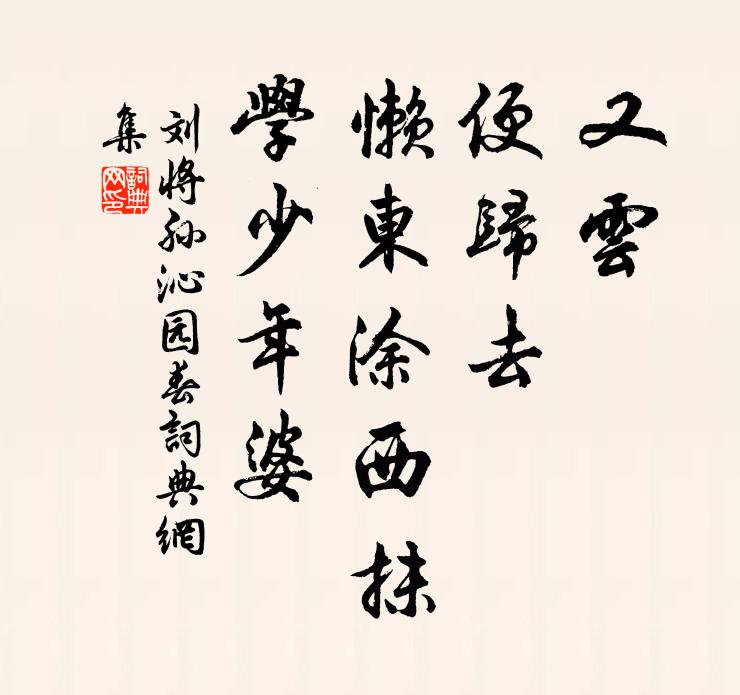 又雲
便歸去
懶東涂西抹
學少年婆
刘将孙沁园春詞典網
集
詞典
网印